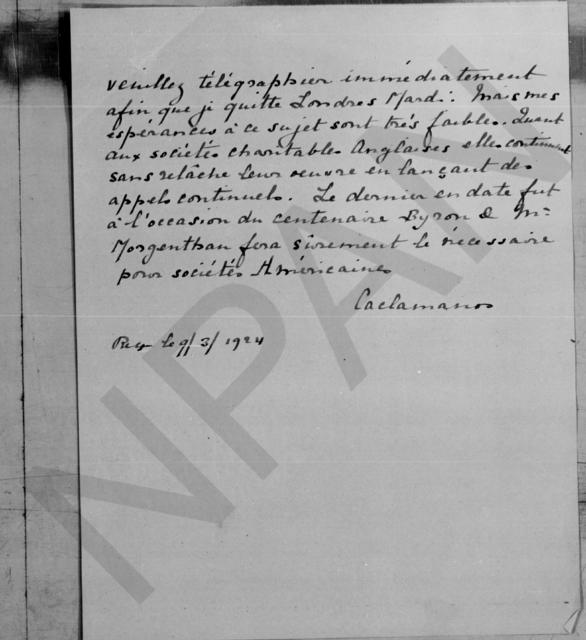 veuillez télégraphier immédiatement
afin que je quitte Londres Mardi. Mais mes
espérances à ce sujet sont très faibles. Quant
aux sociétés charitables Anglaises elles continuent
sans relâche leur oeuvre en lançant des
appels continuels. Le dernier en date fut
à l'occasion du centenaire Byron & Mr
Morgenthau fera sûrement le nécessaire
pour sociétés Américaines
Caclamanos
Reçu le 9/3/1924
NPAN